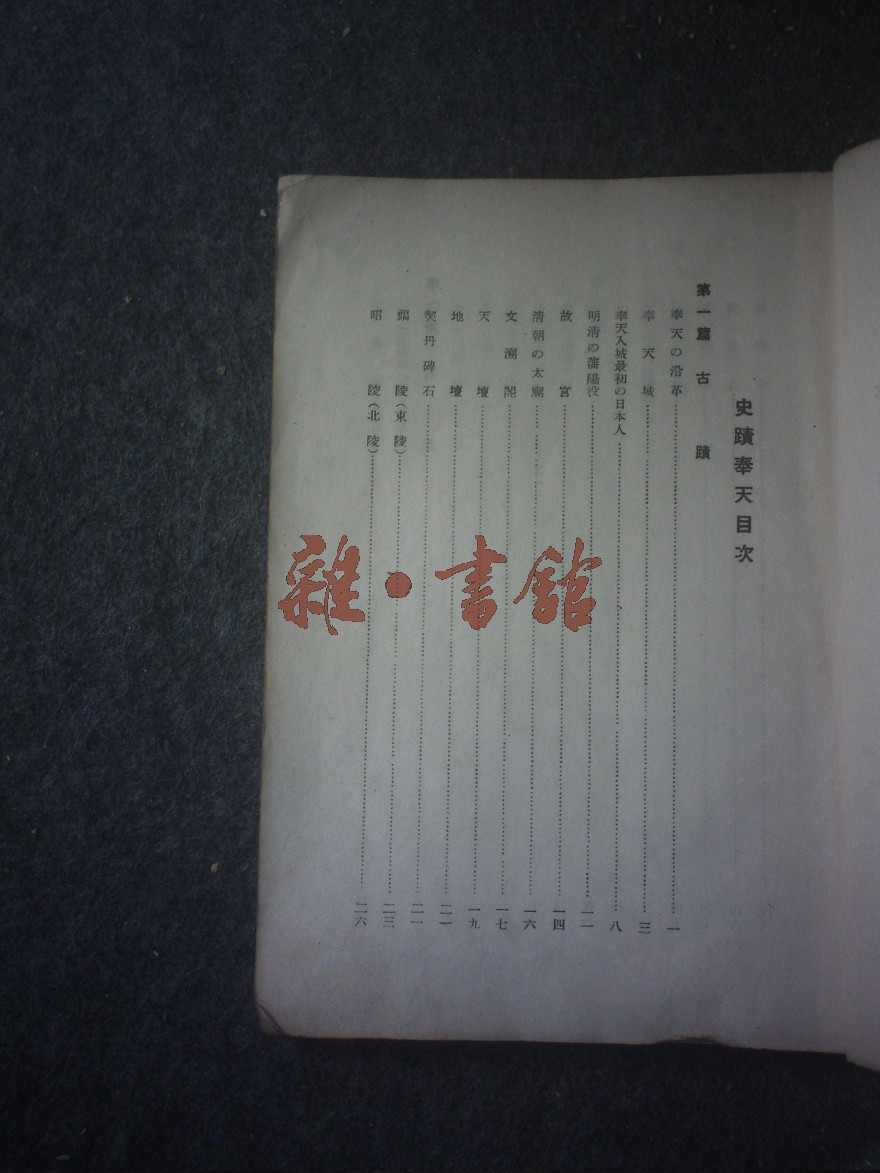 史蹟奉天目次
第一篇 古蹟
奉天の沿革……一
奉天城……三
奉天入城最初の日本人……八
明清の瀋陽役……一二
故宮……一四
清朝の太廟……一六
文溯閣……一七
天壇……一九
地壇……二一
契丹碑石……二一
福陵(東陵)……二三
昭陵(北陵)……二六
雜·書館